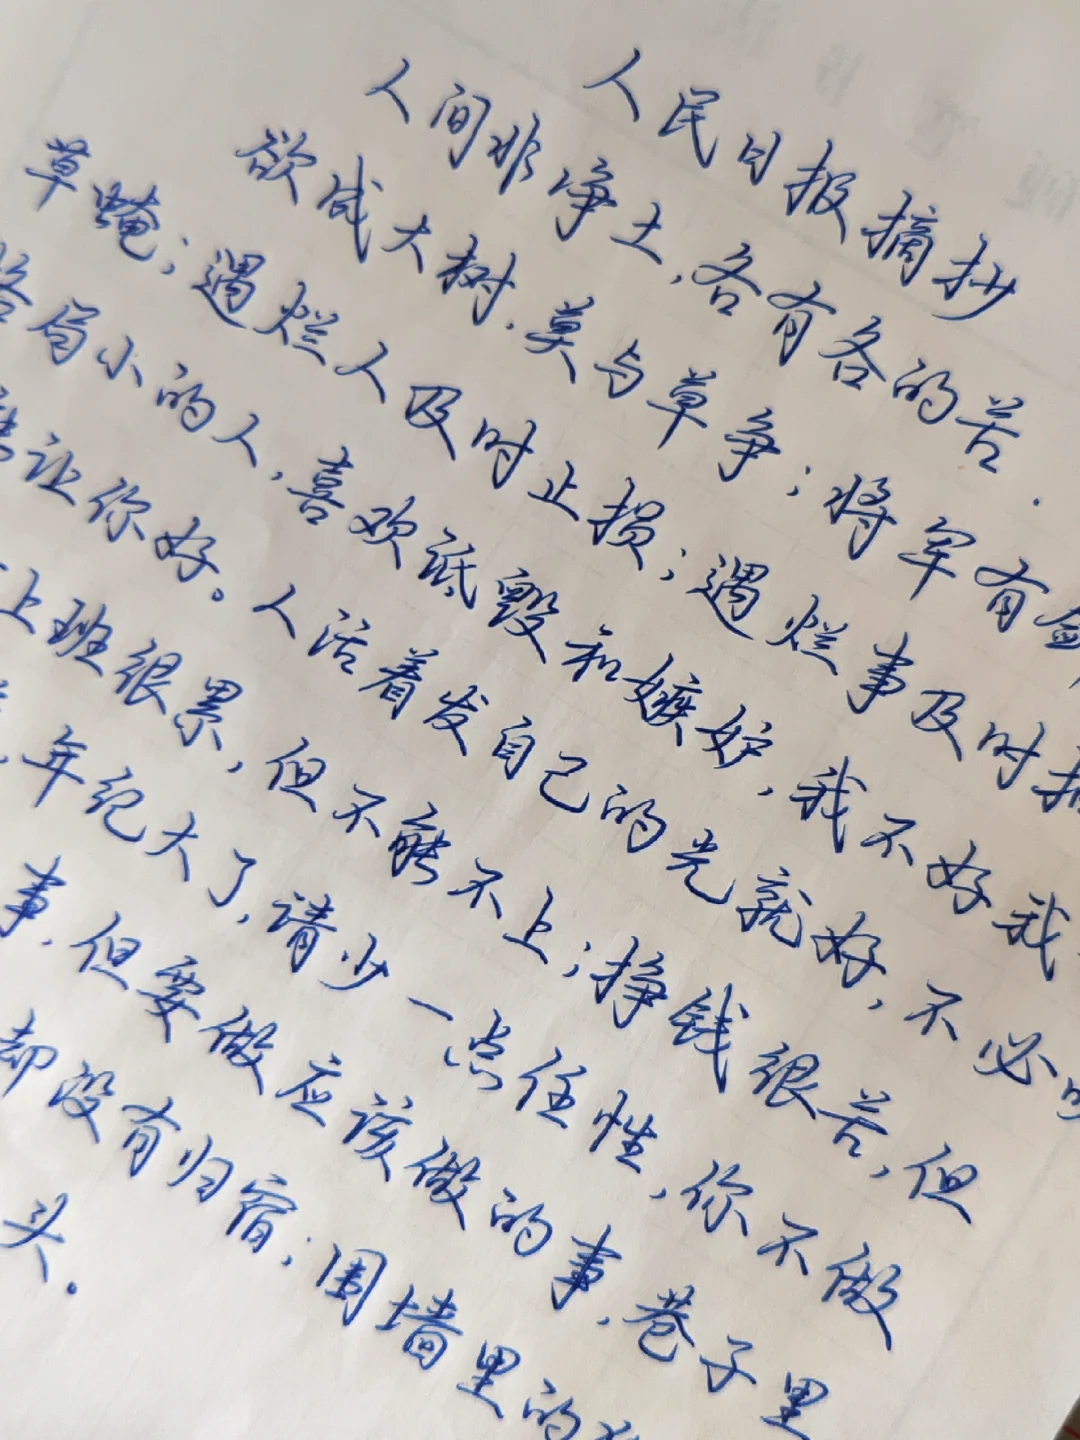 人民日报摘抄
人间非净土,各有各的苦.
欲成大树.莫与草争;将军有
草;遇烂人及时止损;遇烂事及时
格局小的人,喜欢诋毁和嫉妒,我不好我
让你好。人活着发自己的光就好,不必
上班很累,但不能不上;挣钱很苦,但
,年纪大了,请少一点任性,你不做
事.但要做应该做的事.巷子里
却没有归宿;围墙里的
头.